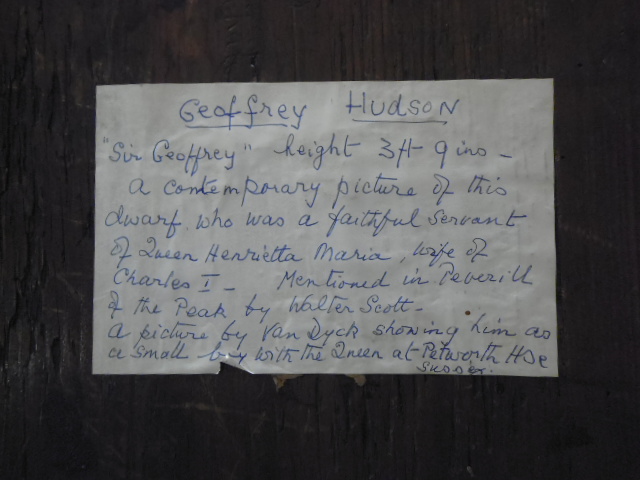 Geoffrey Hudson
"Sir Geoffrey" height 3ft 9 ins -
a contemporary picture of this
dwarf, who was a faithful servant
of Queen Henrietta Maria, wife of
Charles I - Mentioned in Peverill
of the Peak by Walter Scott -
a picture by Van Dyck showing him as
a small boy with the Queen at Petworth Hse
Sussex.